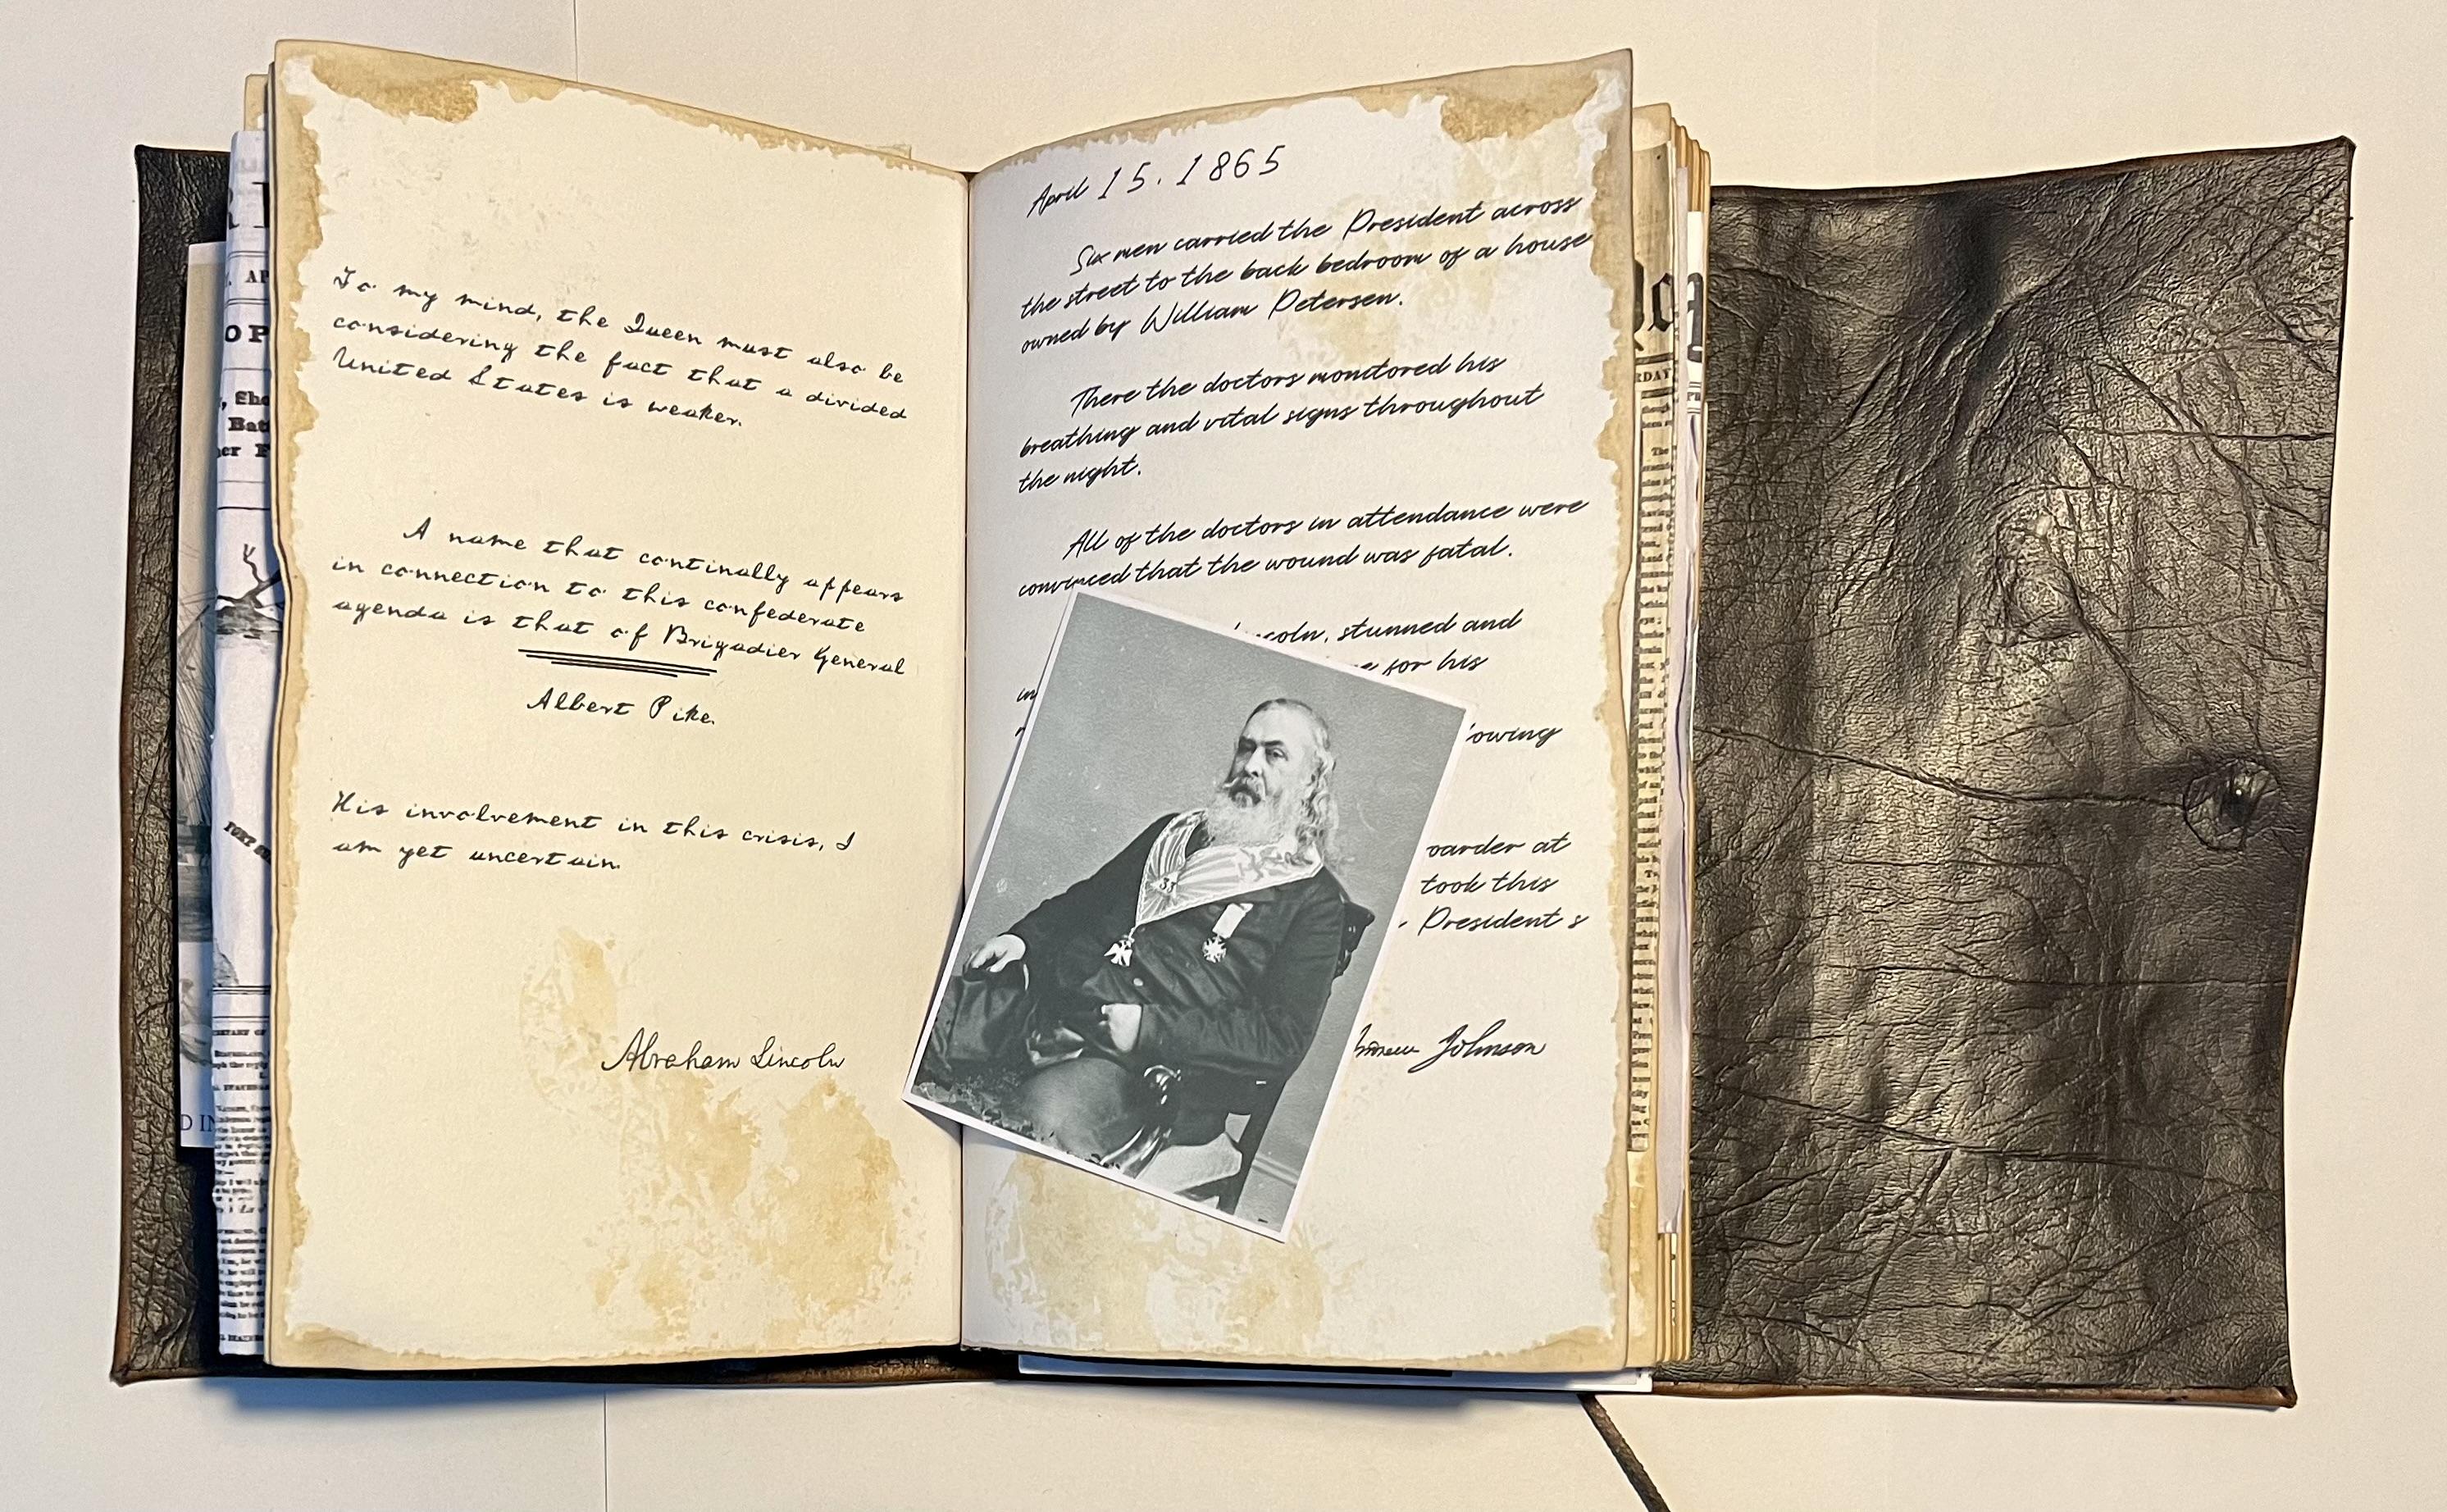 To my mind, the Queen must also be
considering the fact that a divided
United States is weaker.
A name that continally appears
in connection to this confederate
agenda is that of Brigadier General
Albert Pike.
His involvement in this crisis, I
am yet uncertain.
Abraham Lincoln
April 15. 1865
Six men carried the President across
the street to the back bedroom of a house
owned by William Petersen.
There the doctors monitored his
breathing and vital signs throughout
the night.
All of the doctors in attendance were
convinced that the wound was fatal.
stunned and
for his
at
took this
President s
Johnson
33